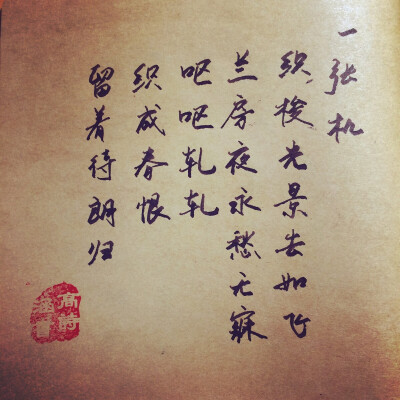 一张机
织梭光景去如飞
兰房夜永愁无寐
呕呕轧轧
织成春恨
留着待朗归